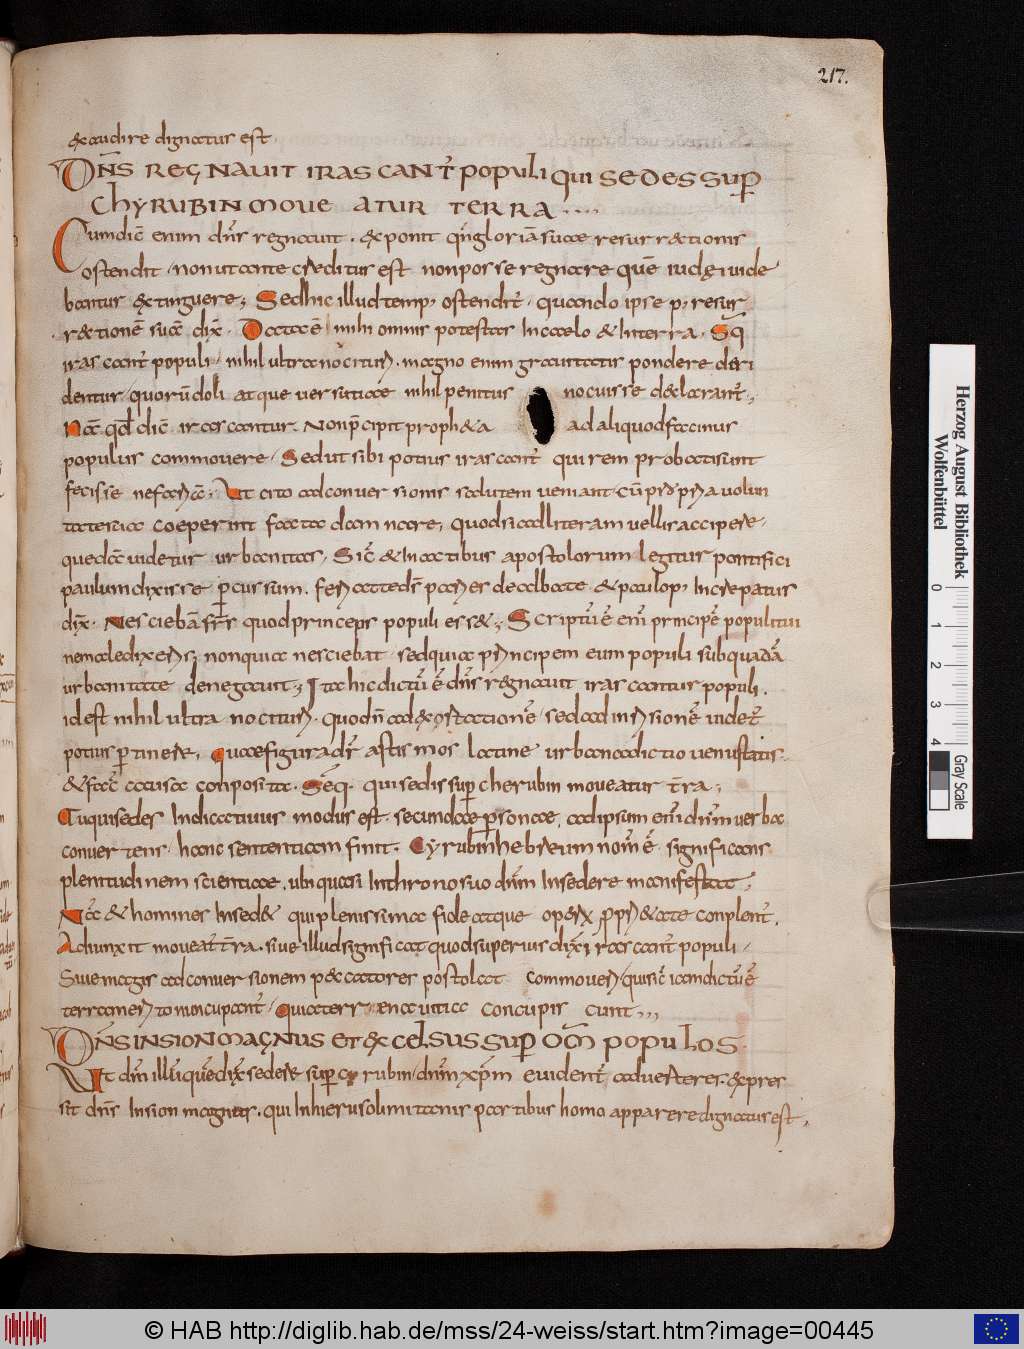 217.
exaudire dignatur est
DN̄S REGNAVIT IRASCANT̄ populi QUI SEDES SUP̄
ChYRUBIN MOVEATUR TERRA
Cum dic̄ enim dn̄s regnavit. exponit qn̄ gloriā suae resurrectionis
ostendit, non ut ante creditus est non posse regnare quē iudęi vide
bantur extinguere; Sed hic illud temp; ostendit̄, quando ipse p; resur
rectionē suā dix̄. Data ē mihi omnis potestas In caelo & In terra. Seq̄
irascant̄ populi, nihil ultra nocituri. magno enim gravitatis pondere deri
dentur, quorū doli atque versutiae nihil penitus nocuisse declarant̄;
Nā qd̄ dic̄ irascantur. Non p̄cipit propheta ad aliquod facinus
populus commovere, Sed ut sibi potius irascant̄ qui rem probatissimi
fecisse nefariā; Ut cito ad conversionis salutem veniant
coeperint facta damnare, quod si ad literam vellis accipere,
quedā videtur urbanitas, Sic̄ & In actibus apostolorum legitur pontifici
paulum dixisse p̄cussum. feriat te d̄s paries dealbate & paulo p; Increpatus
dix̄. Nesciebā fr̄s quod princeps populi esset; Scriptū ē em̄ principē populi tui
ne maledixeris; non quia nesciebat, sed quia principem eum populi sub quadā
urbanitate denegavit; Ita hic dictū ē dn̄s regnavit irascantur populi.
id est nihil ultra nocituri. quod n̄ ad exortationē, sed ad inrisionē videt̄
potius p̄tinere, Quae figura dr̄ astismos latine urbana dictio venustatis
& facē causa conposita. Seq̄. qui sedis sup̄ cherubin moveatur t̄ra;
Tu qui sedes Indicativus modus est, secundae p̄sonae, ad ipsum em̄ dn̄m verba
convertens, hanc sententiam finit. Cyrubin hebreum nom̄ ē, significans
plenitudinem scientiae, ubi quasi In throno suo dn̄m Insedere manifestat;
Nā & homines Inset& qui plenissima fide atque
Adiunxit moveat̄ t̄ra. sive illud significat quod superius dix̄ irascant̄ populi,
Sive magis ad conversionem peccatores postolat commoveri, qui sic̄ iam dictū ē
terra merito nuncupant̄, quia terrena vitia concupiscunt
DN̄S IN SION MAGNUS ET EXCELSUS SUP̄ OM̄ POPULOS
Ut dn̄m illū quē dix̄ sedere sup̄ cyrubin, dn̄m xp̄m evident̄ adverteres. expres
sit dn̄s In sion magnus. qui In hierusolimitanis partibus homo apparere dignatus est,
Herzog August Bibliothek
Wolfenbüttel
0 1 2 3 4
Gray Scale
© HAB http://diglib.hab.de/mss/24-weiss/start.htm?image=00445